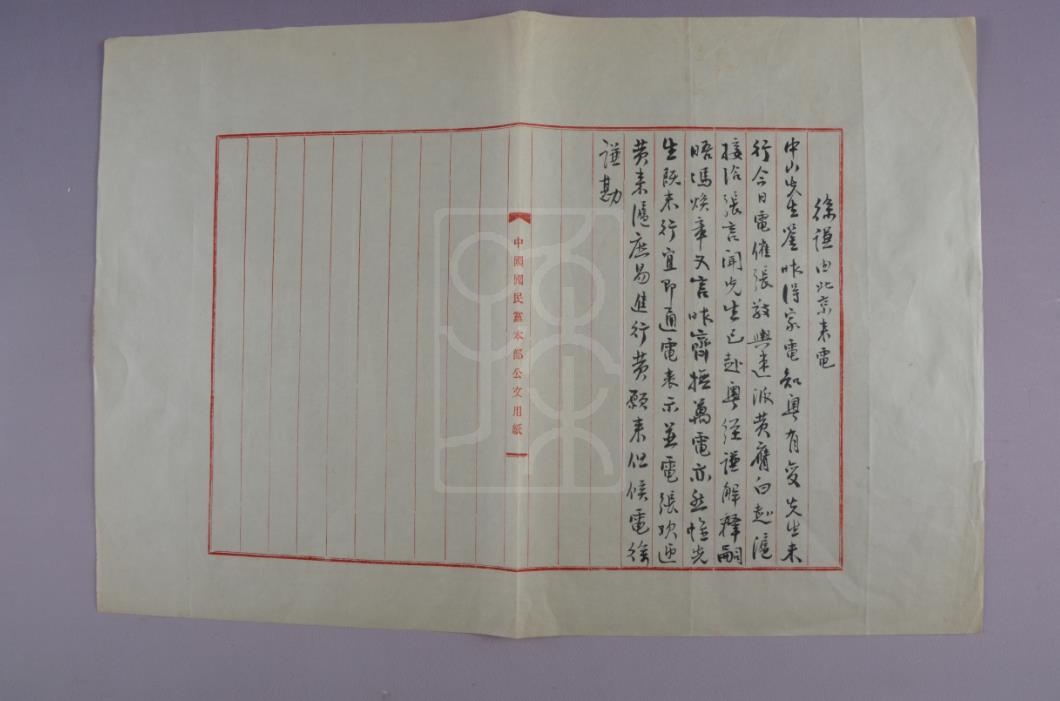 徐謙由北京来電
中山先生鑒昨得家電知粤有變先生未
行今日電催張敬輿速派黄膺白赴滬
接洽張言聞先生已赴粤經謙解釋嗣
晤馮煥章又言昨齊撫萬電亦然惟先
生既未行宜即通電表示並電張欢迎
黄来滬庶易進行黄願来但候電徐
謙勘
中國國民黨本部公文用紙